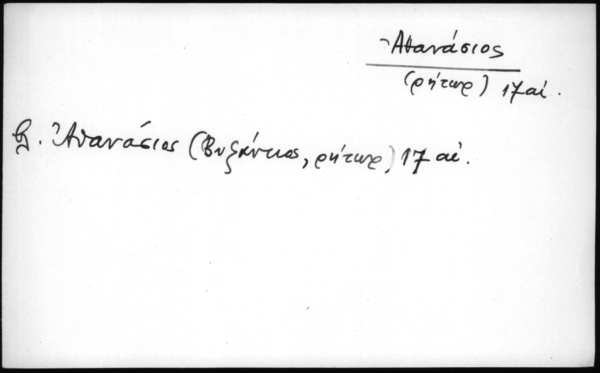 Ἀθανάσιος
(ρήτωρ) 17 αἰ.
βλ. Ἀθανάσιος (Βυζάντιος, ρήτωρ) 17 αἰ.